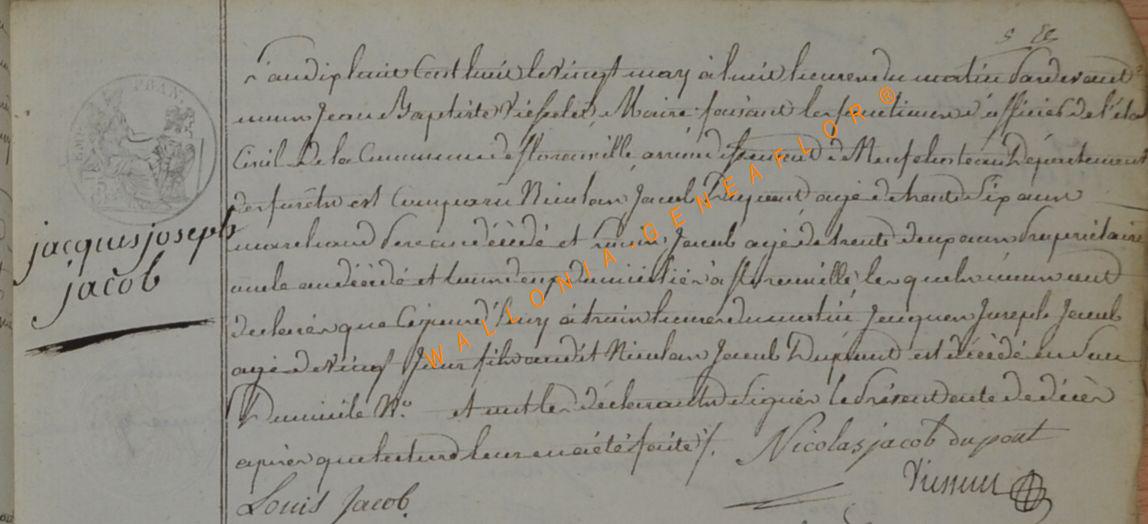 jacques joseph
jacob
L'an dix huit Cent huit le vingt may à huit heures du matin Pardevant
nous Jean Baptiste Maire faisant les fonctions d'officier de l'état
Civil de la Commune de florenville arrondissement de Neufchateau Département
des forêts est Comparu Nicolas Jacob Dupont agé de trente Six ans
marchand Pere au décédé et Louis Jacob agé de trente deux ans Propriétaire
oncle au décédé et tous deux domiciliés à florenville les quels nous ont
déclarés que Cejourd'huy à trois heures du matin Jacques Joseph Jacob
agé de vingt Jours fils audit Nicolas Jacob Dupont est décédé en Son
Domicile N.º Et ont les déclarants Signés le Présent acte de décès
après que lecture leur en a été faite /.
Nicolas jacob dupont
Louis Jacob
WALLONIA GENEAFLOR ®